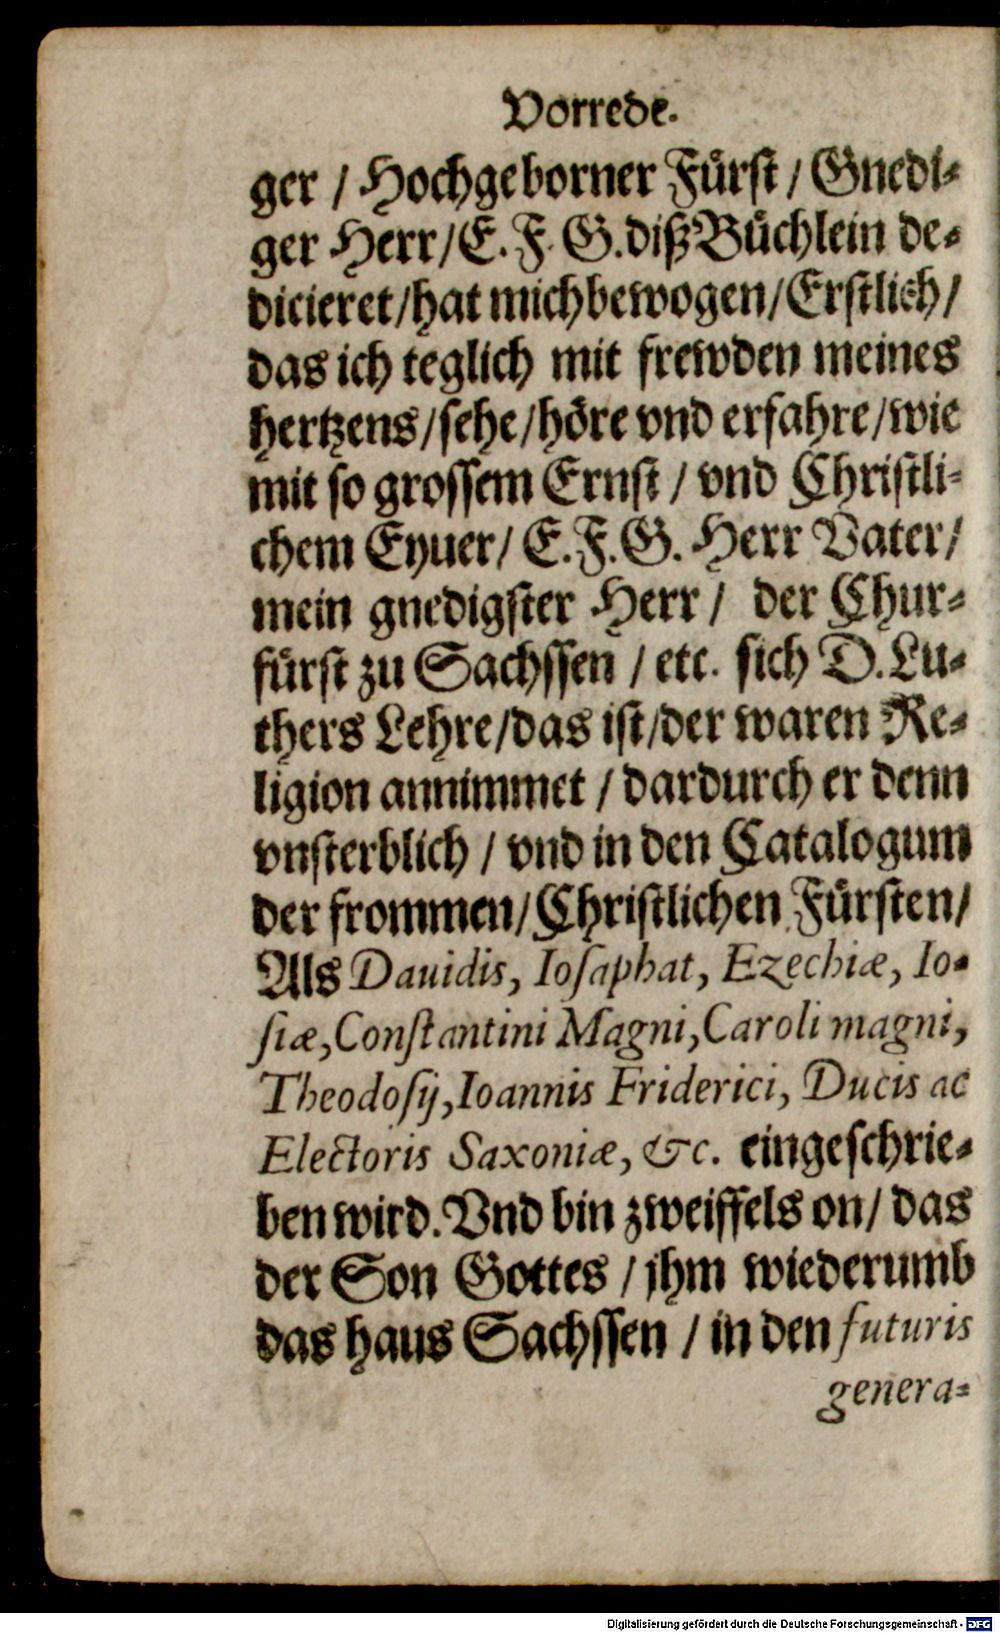 Vorrede.
ger / Hochgeborner Fürst / Gnedi⸗
ger Herr / E. F. G. diß Büchlein de⸗
dicieret / hat mich bewogen / Erstlich /
das ich teglich mit frewden meines
hertzens / sehe / höre vnd erfahre / wie
mit so grossem Ernst / vnd Christli⸗
chem Eyuer / E. F. G. Herr Vater /
mein gnedigster Herr / der Chur⸗
fürst zu Sachssen / etc. sich D. Lu⸗
thers Lehre / das ist / der waren Re⸗
ligion annimmet / dardurch er denn
vnsterblich / vnd in den Catalogum
der frommen / Christlichen Fürsten /
Als Dauidis, Ioſaphat, Ezechiæ, Io⸗
ſiæ, Conſtantini Magni, Caroli magni,
Theodoſij, Ioannis Friderici, Ducis ac
Electoris Saxoniæ, &c. eingeschrie⸗
ben wird. Vnd bin zweiffels on / das
der Son Gottes / jhm wiederumb
das haus Sachssen / in den futuris
genera⸗
Digitalisierung gefördert durch die Deutsche Forschungsgemeinschaft - DFG